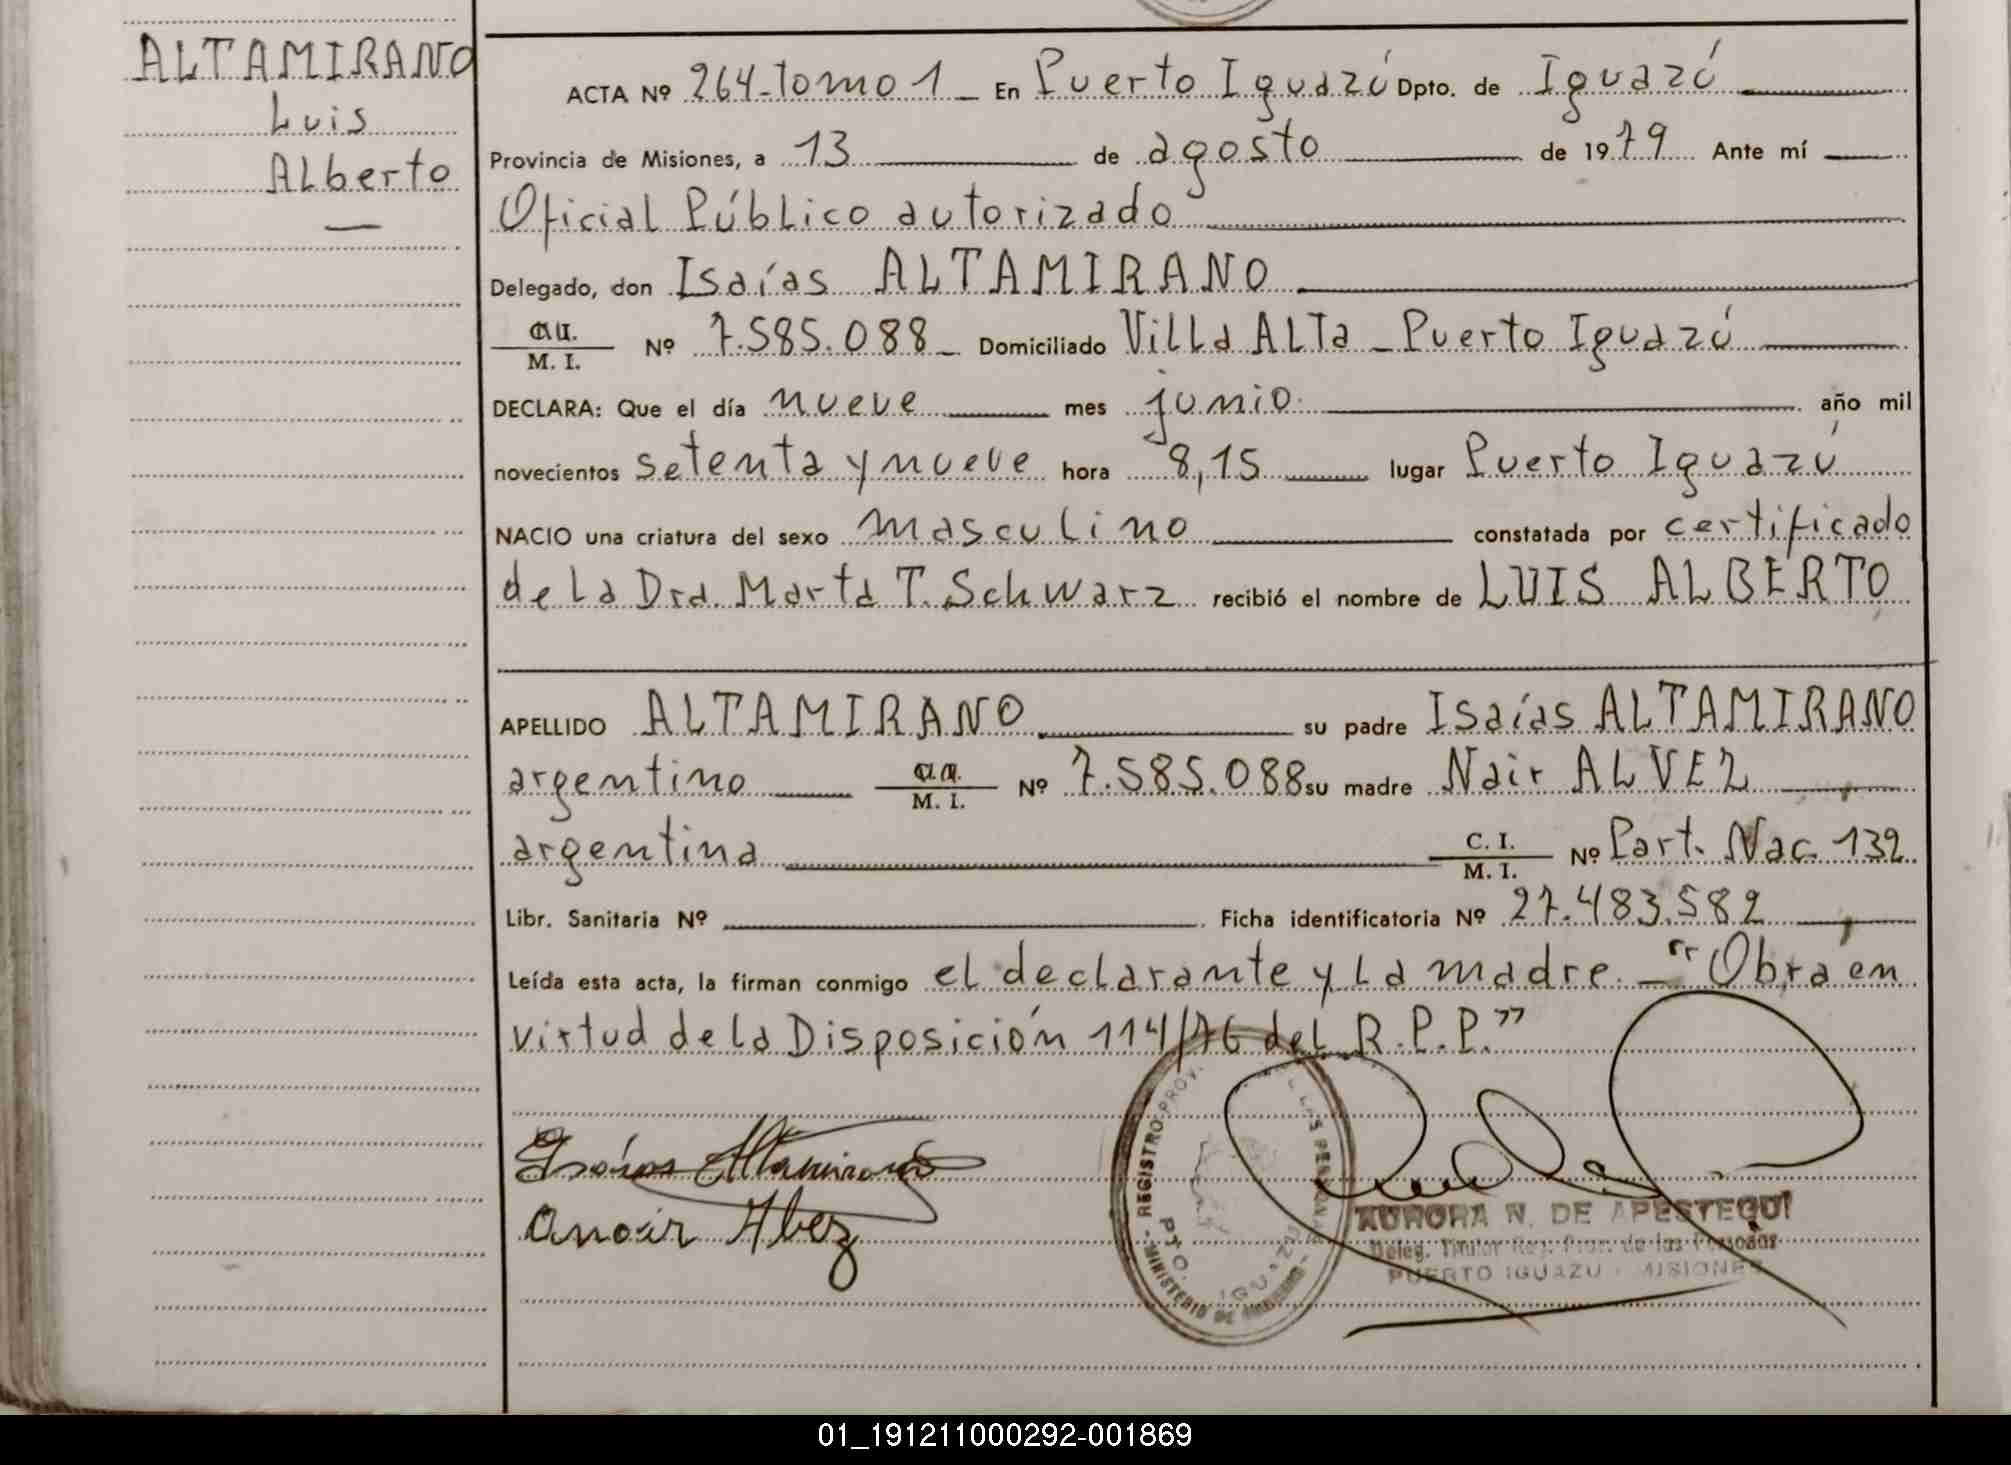 ALTAMIRANO
Luis
Alberto
ACTA Nº 264-tomo 1 En Puerto Iguazú Dpto. de Iguazú
Provincia de Misiones, a 13 de agosto de 1979 Ante mí
Oficial Público autorizado
Delegado, don Isaías ALTAMIRANO
M. I. Nº 7.585.088 Domiciliado Villa Alta - Puerto Iguazú
DECLARA: Que el día nueve mes junio año mil
novecientos setenta y nueve hora 8,15 lugar Puerto Iguazú
NACIO una criatura del sexo masculino constatada por certificado
de la Dra. Marta T. Schwarz recibió el nombre de LUIS ALBERTO
APELLIDO ALTAMIRANO su padre Isaías ALTAMIRANO
argentino M. I. Nº 7.585.088 su madre Nair ALVEZ
argentina C. I. M. I. Nº Part. Nac. 132
Libr. Sanitaria Nº Ficha identificatoria Nº 27.483.582
Leída esta acta, la firman conmigo el declarante y la madre. - "Obra en
virtud de la Disposición 114/76 del R.P.P."
Isaías Altamirano
anair Albez
REGISTRO PROV. DE LAS PERSONAS
PTO. IGUAZU
MINISTERIO DE GOBIERNO
AURORA N. DE APESTEGUI
Deleg. Titular Reg. Prov. de las Personas
PUERTO IGUAZU - MISIONES
01_191211000292-001869